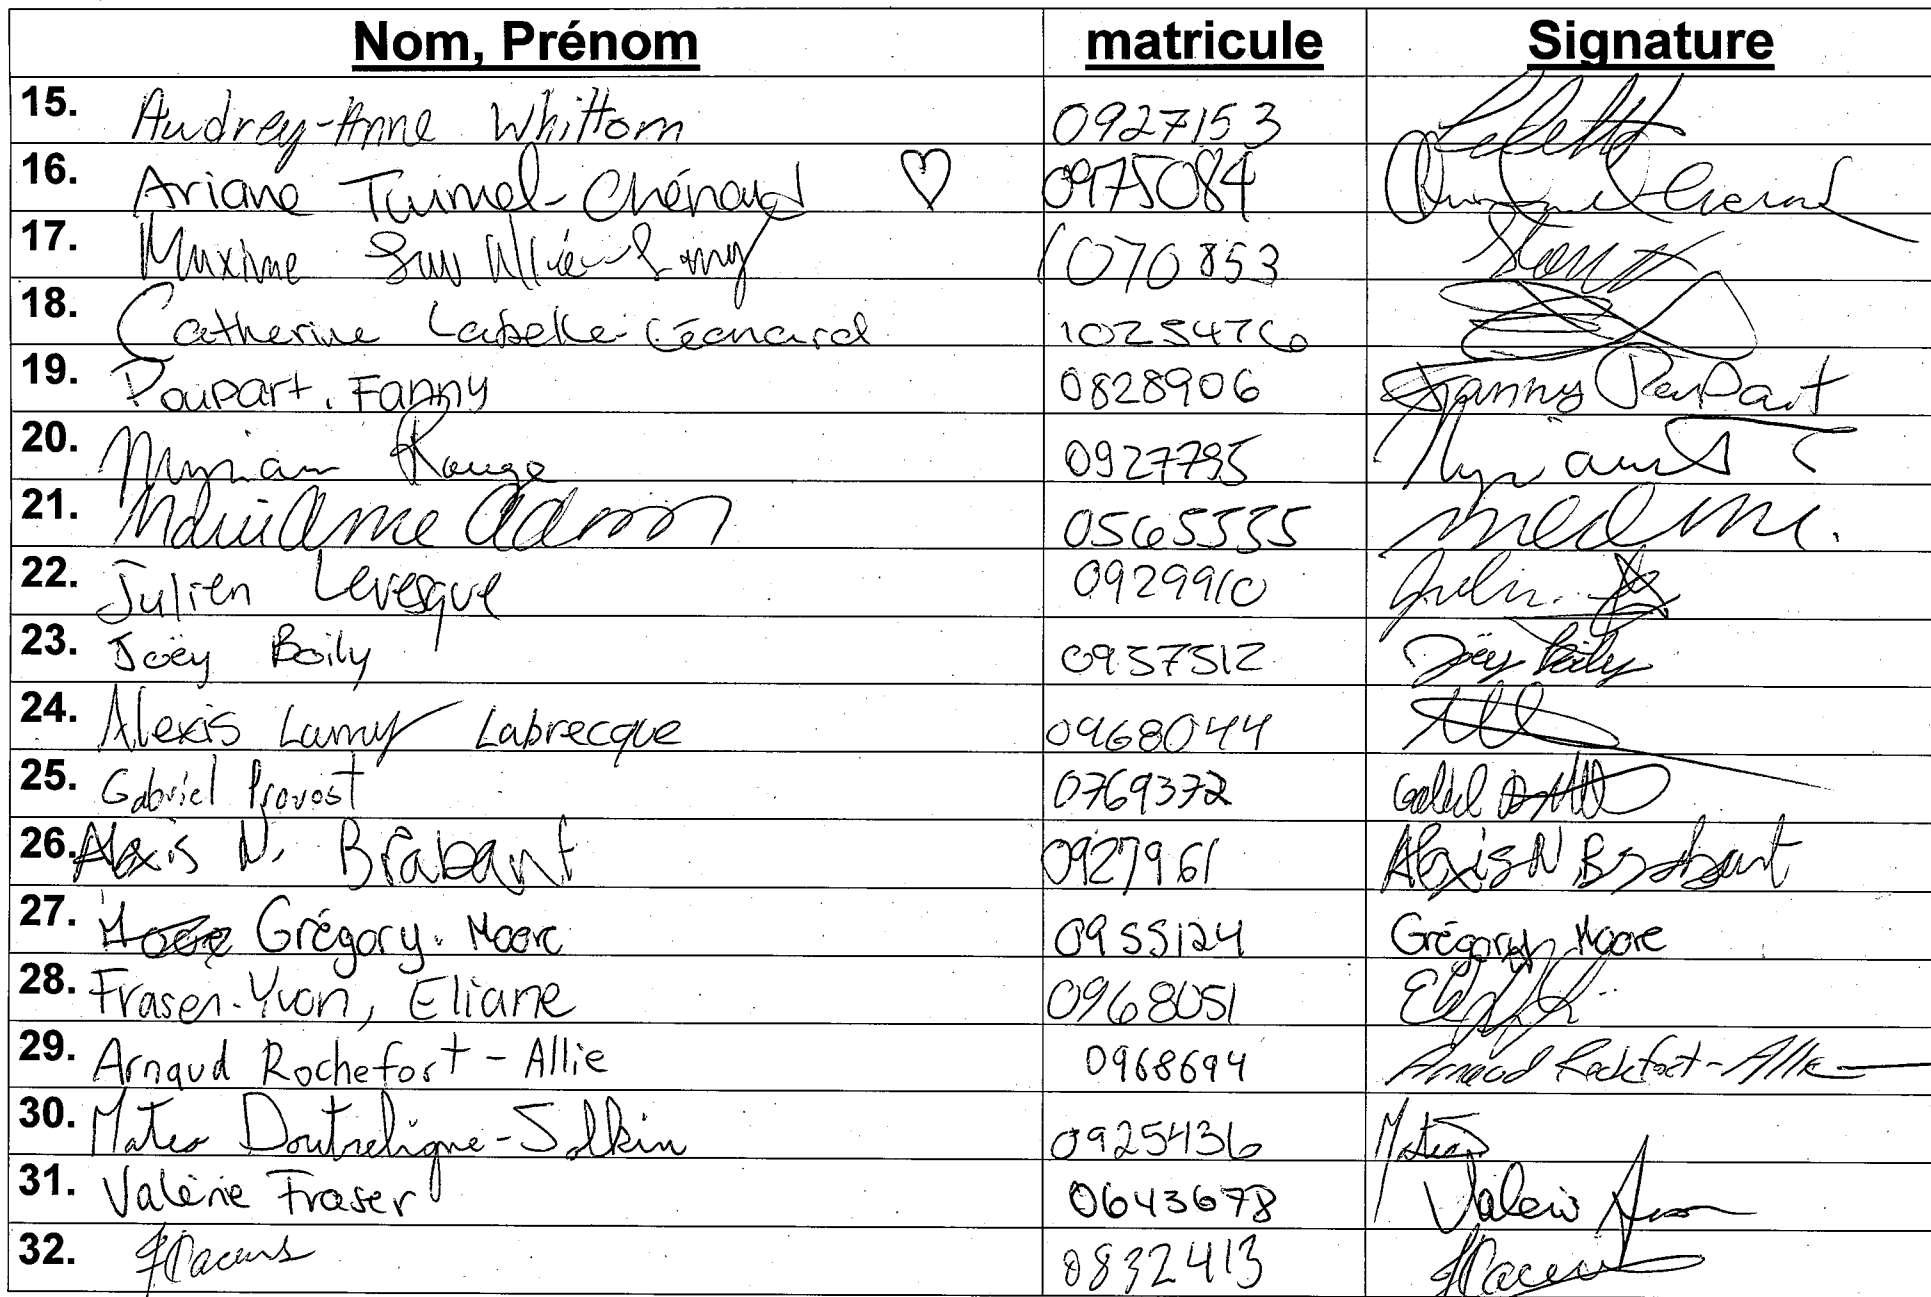 Nom, Prénom matricule Signature
15. Audrey-Anne Whittom 0927153
16. Ariane Turmel-Chénard ♡ 0975084
17. Maxime 1070853
18. Catherine Labelle-Léonard
19. Poupart, Fanny 0828906 Fanny Poupart
20. Myriam Rouge 0927795
21. 0565535
22. Julien Levesque 0929910 Julien
23. Joëy Boily 0937312 Joëy Boily
24. Alexis Lamy Labrecque 0968044
25. Gabriel Provost 0769372
26. Alexis N. Brabant 0927961 Alexis N Brabant
27. Grégory. Moore 0955124 Grégory Moore
28. Fraser-Yvon, Eliane 0968051
29. Arnaud Rochefort-Allie 0968694 Arnaud Rochefort-Allie
30. Mateo Doutreligne-Salkin 0925436 Mateo
31. Valérie Fraser 0643678 Valérie
32. 0832413